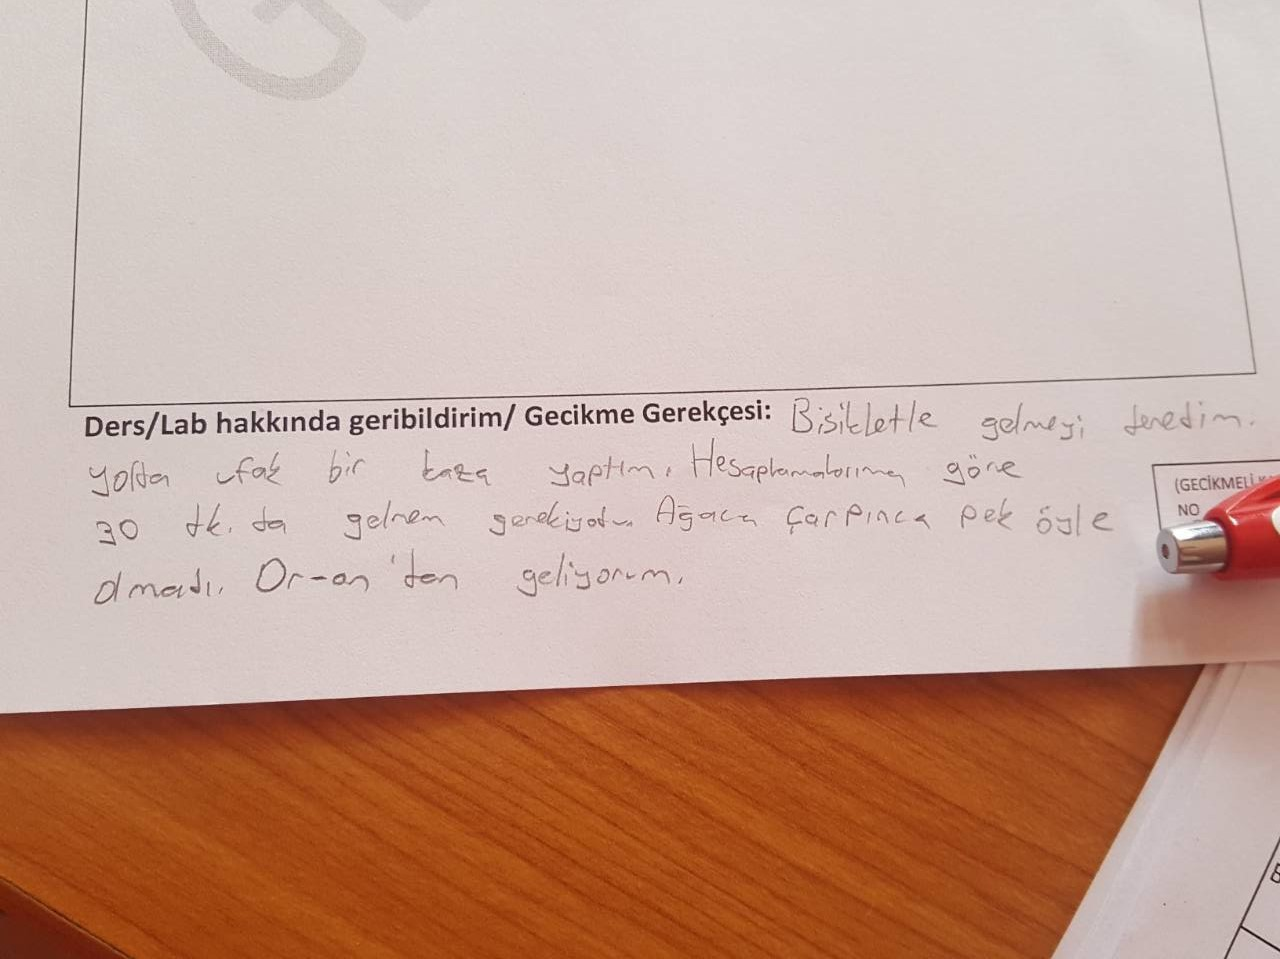 Ders/Lab hakkında geribildirim/ Gecikme Gerekçesi: Bisikletle gelmeyi denedim.
yolda ufak bir kaza yaptım. Hesaplamalarıma göre
30 dk. da gelmem gerekiyodu. Ağaca çarpınca pek öyle
olmadı. Or-an'dan geliyorum.
(GECİKMELİ
NO